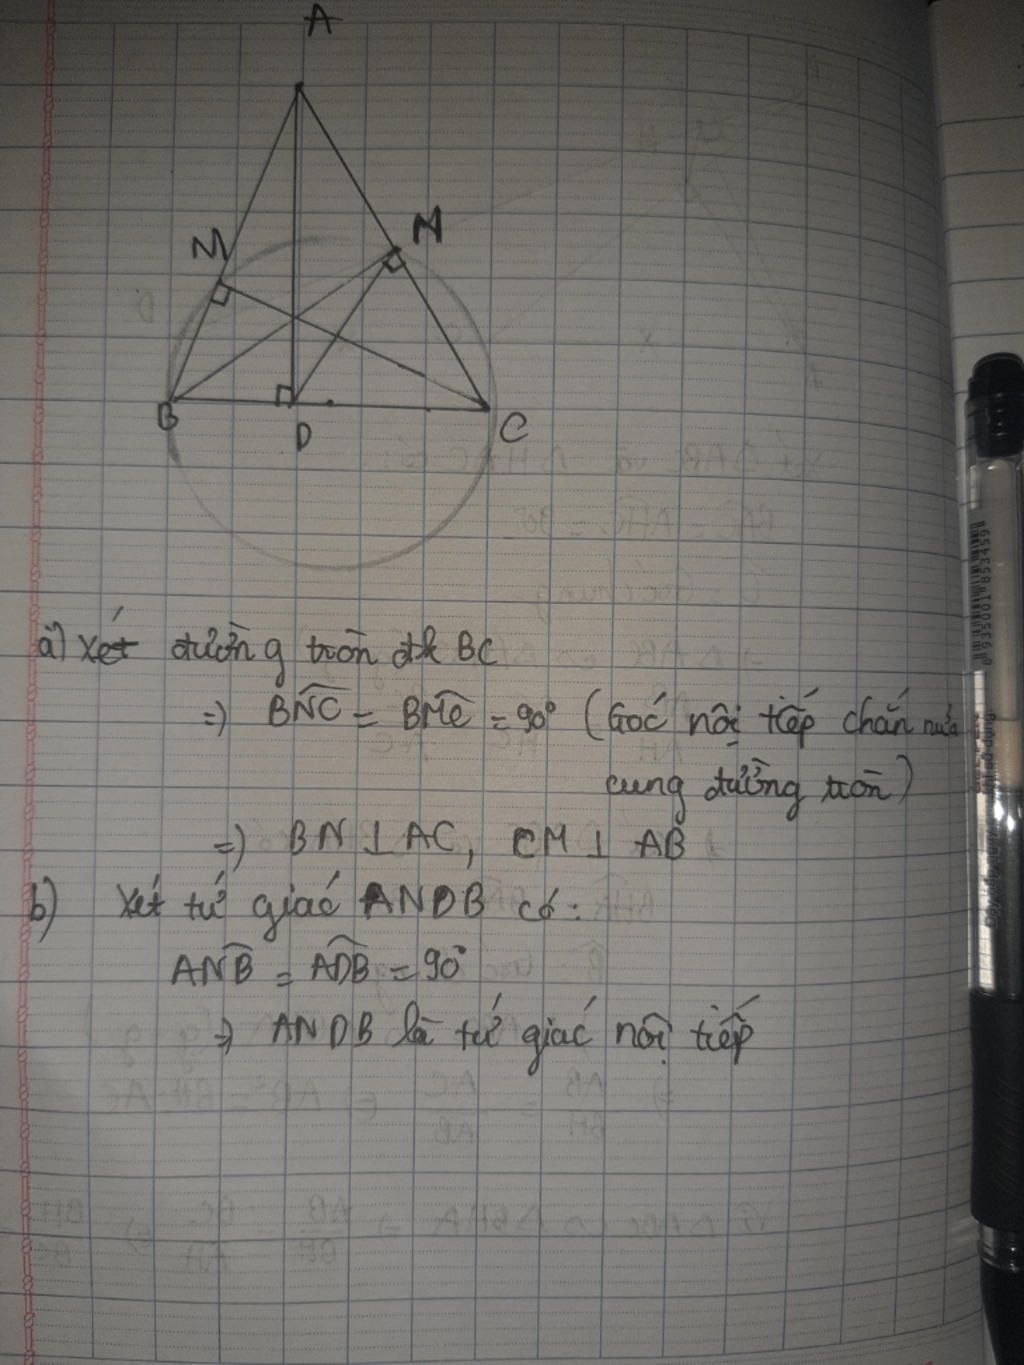 A
M
N
B
D
C
a) Xét đường tròn đk BC
=) BNC = BMC = 90° (Góc nội tiếp chắn nửa
cung đường tròn)
=) BN ⊥ AC, CM ⊥ AB
b) Xét tứ giác ANDB có:
ANB = ADB = 90°
=) ANDB là tứ giác nội tiếp